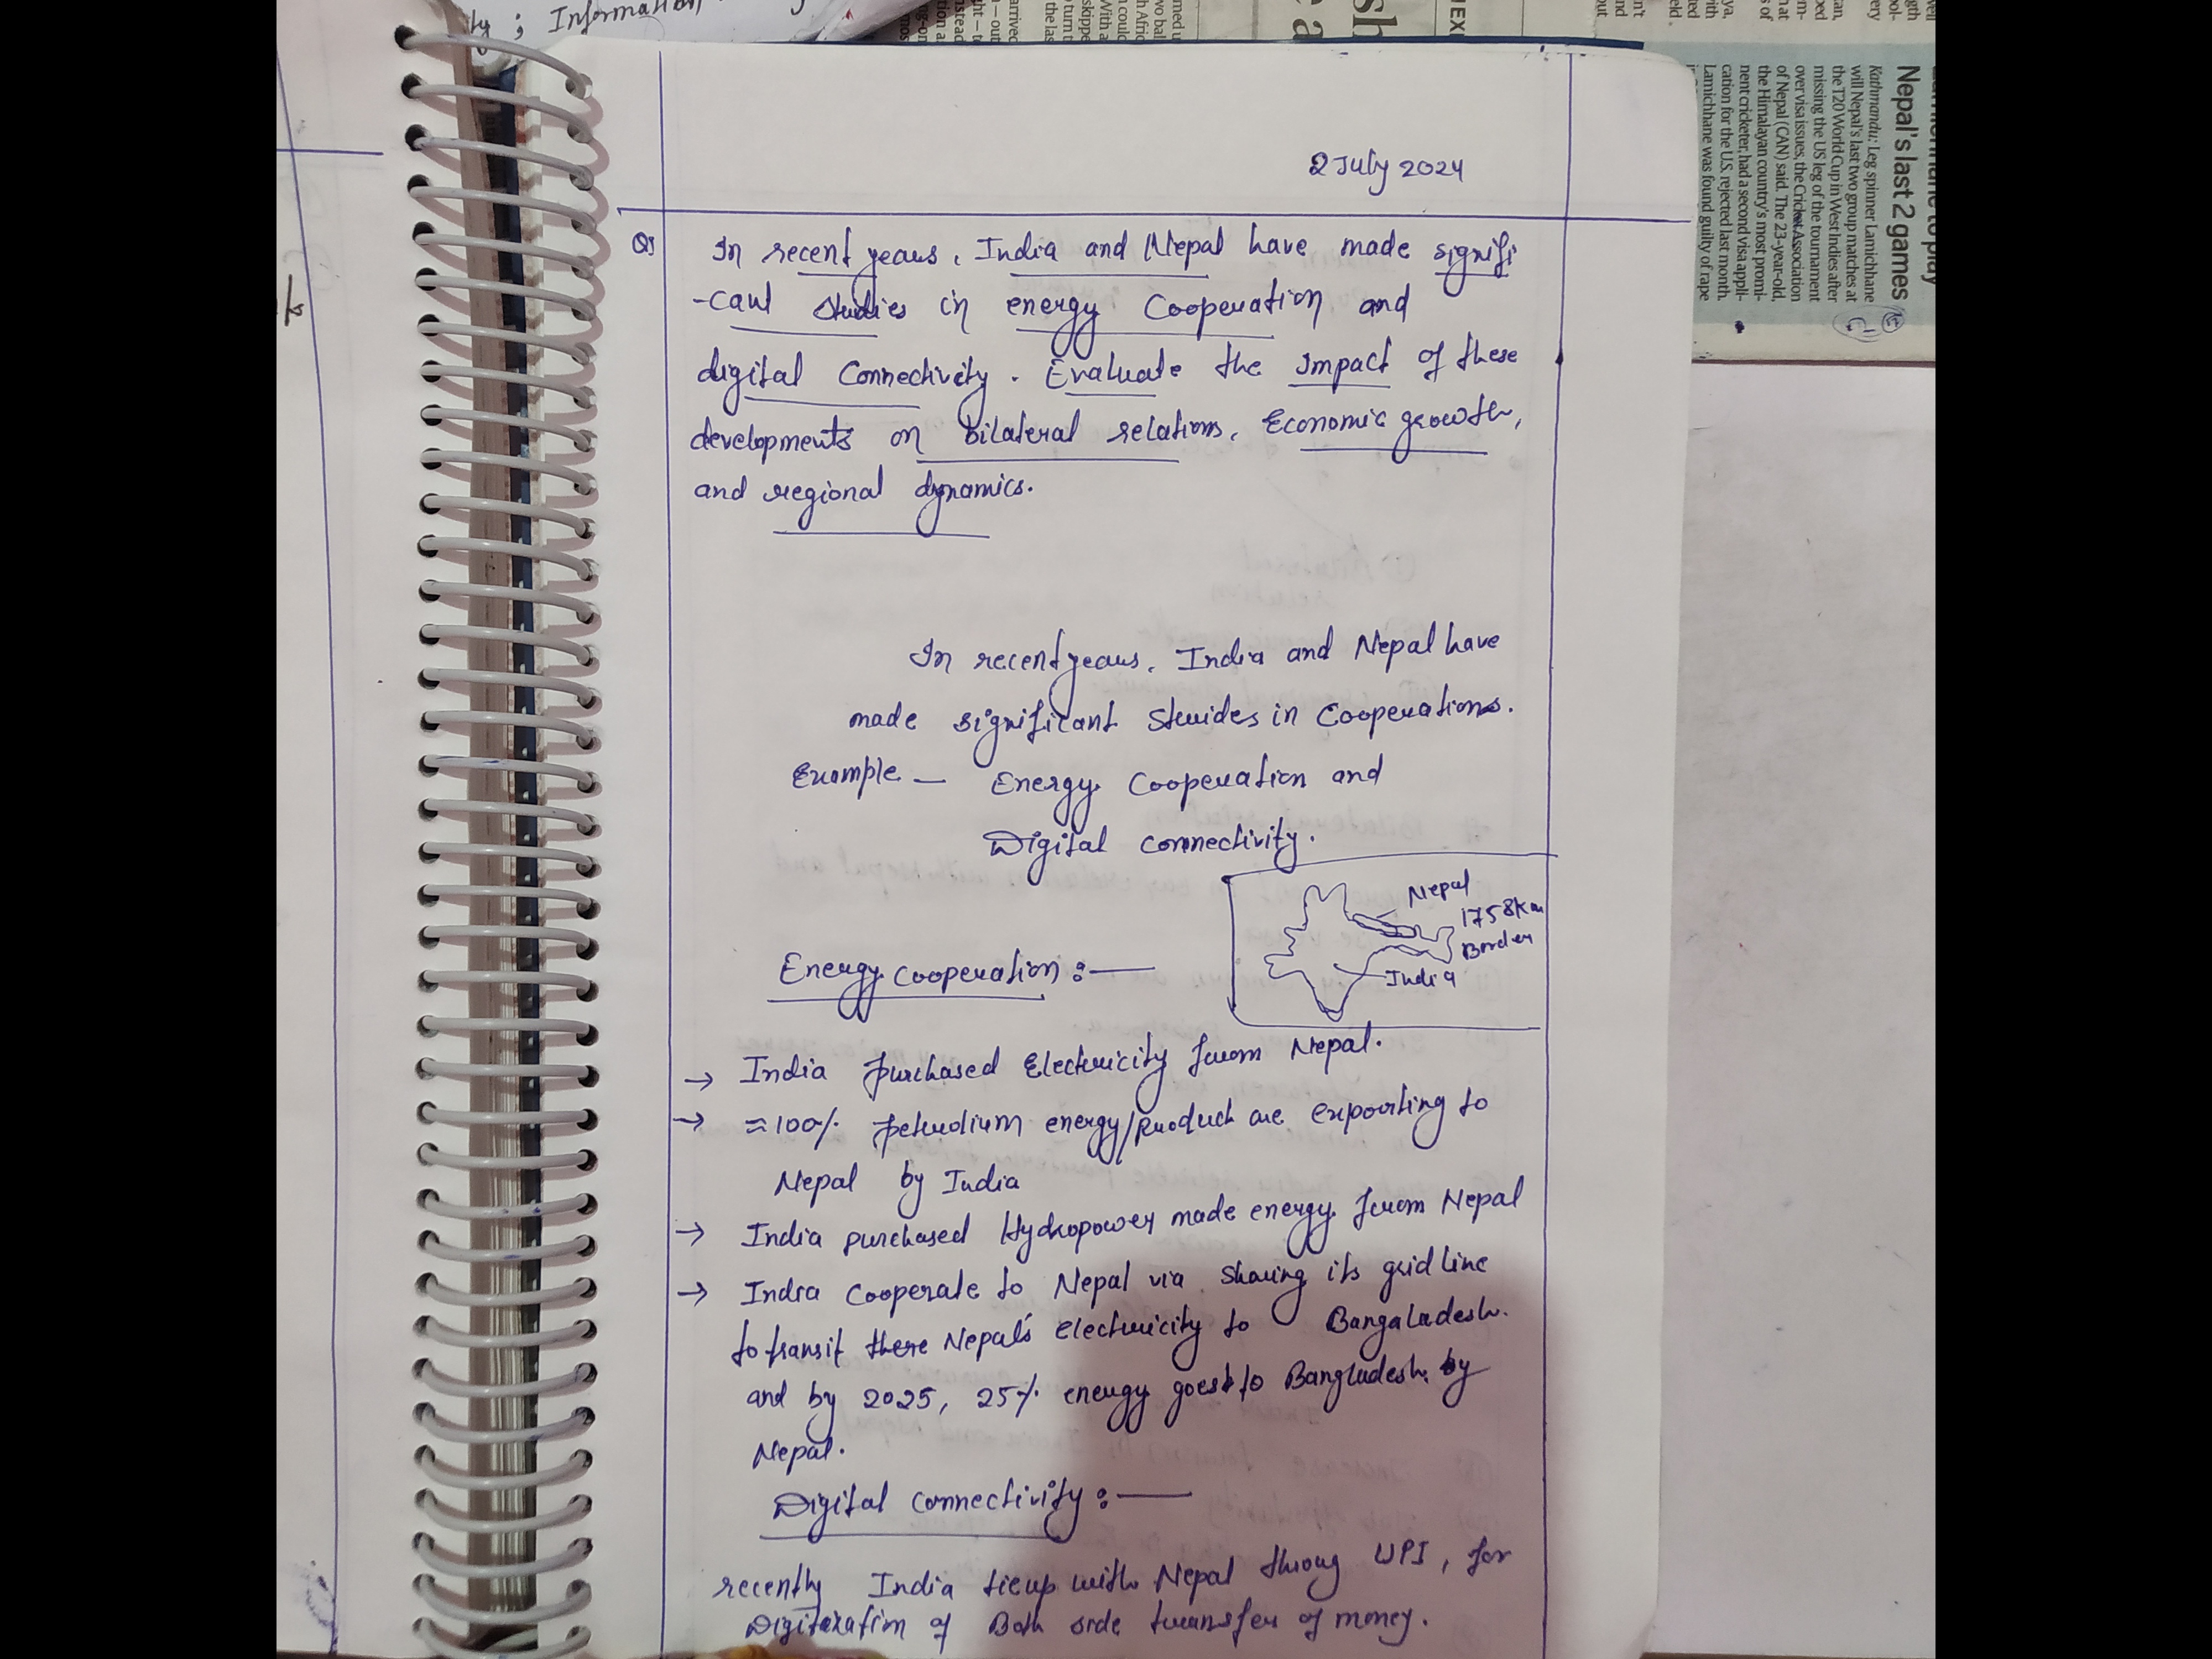 ty ; Information
2 July 2024
Q1 In recent years, India and Nepal have made signifi
-cant studies in energy Cooperation and
digital Connectivity. Evaluate the impact of these
developments on bilateral relations, Economic growth,
and regional dynamics.
In recent years, India and Nepal have
made significant Strides in Cooperations.
Example — Energy Cooperation and
Digital connectivity.
Nepal
1758km
Border
India
Energy cooperation :—
→ India purchased Electricity from Nepal.
→ ≈100% petrolium energy/product are exporting to
Nepal by India
→ India purchased Hydropower made energy from Nepal
→ India Cooperate to Nepal via sharing its grid line
to transit there Nepal's electricity to Bangaladesh.
and by 2025, 25% energy goes to Bangladesh by
Nepal.
Digital connectivity :—
recently India tieup with Nepal throug UPI, for
Digitazation of Both side transfer of money.
Nepal's last 2 games
Kathmandu: Leg spinner Lamichhane
will Nepal's last two group matches at
the T20 World Cup in West Indies after
missing the US leg of the tournament
over visa issues, the Cricket Association
of Nepal (CAN) said. The 23-year-old,
the Himalayan country's most promi-
nent cricketer, had a second visa appli-
cation for the U.S. rejected last month.
Lamichhane was found guilty of rape